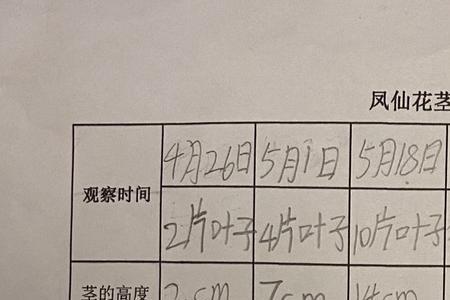 凤仙花茎
4月26日 5月1日 5月18日
观察时间
2片叶子 4片叶子 10片叶子
茎的高度 2cm 7cm